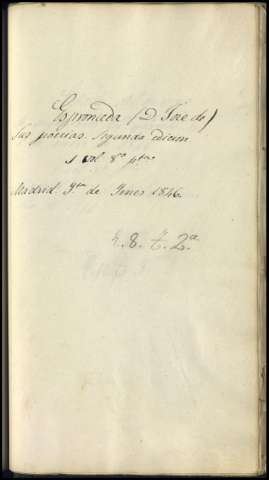 Espronceda (D. Jose de)
Sus poesias. segunda edicion
1 vol. 8º
Madrid. de 1846.
E. 8. t. 2ª